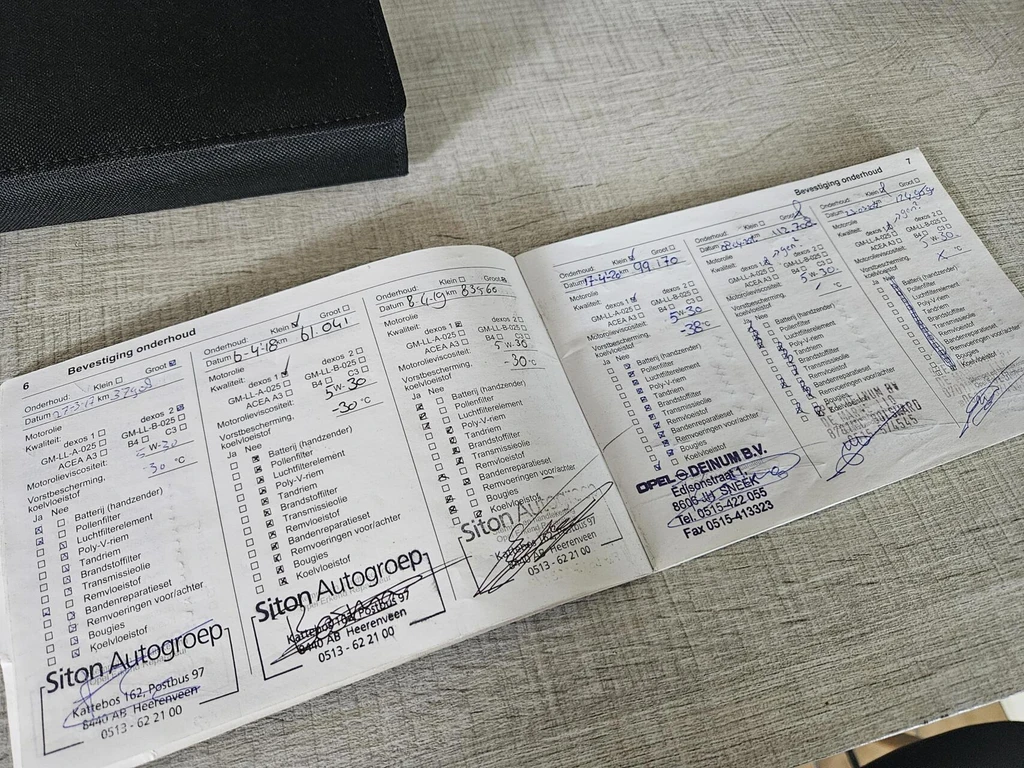 6
Bevestiging onderhoud
Onderhoud: Klein Groot
Datum 27-3-17 km
Motorolie
Kwaliteit: dexos 1 dexos 2
GM-LL-A-025 GM-LL-B-025
ACEA A3 B4 C3
Motorolieviscositeit: 5W-30
Vorstbescherming,
koelvloeistof -30 °C
Ja Nee
Batterij (handzender)
Pollenfilter
Luchtfilterelement
Poly-V-riem
Tandriem
Brandstoffilter
Transmissieolie
Remvloeistof
Bandenreparatieset
Remvoeringen voor/achter
Bougies
Koelvloeistof
Siton Autogroep
Kattebos 162, Postbus 97
8440 AB Heerenveen
0513 - 62 21 00
Onderhoud: Klein Groot
Datum 6-4-18 km 61.041
Motorolie
Kwaliteit: dexos 1 dexos 2
GM-LL-A-025 GM-LL-B-025
ACEA A3 B4 C3
Motorolieviscositeit: 5W-30
Vorstbescherming,
koelvloeistof -30 °C
Ja Nee
Batterij (handzender)
Pollenfilter
Luchtfilterelement
Poly-V-riem
Tandriem
Brandstoffilter
Transmissieolie
Remvloeistof
Bandenreparatieset
Remvoeringen voor/achter
Bougies
Koelvloeistof
Siton Autogroep
Kattebos 162, Postbus 97
8440 AB Heerenveen
0513 - 62 21 00
Onderhoud: Klein Groot
Datum 8-4-19 km 83560
Motorolie
Kwaliteit: dexos 1 dexos 2
GM-LL-A-025 GM-LL-B-025
ACEA A3 B4 C3
Motorolieviscositeit: 5W-30
Vorstbescherming,
koelvloeistof -30 °C
Ja Nee
Batterij (handzender)
Pollenfilter
Luchtfilterelement
Poly-V-riem
Tandriem
Brandstoffilter
Transmissieolie
Remvloeistof
Bandenreparatieset
Remvoeringen voor/achter
Bougies
Koelvloeistof
Siton Autogroep
Kattebos 162, Postbus 97
8440 AB Heerenveen
0513 - 62 21 00
7
Bevestiging onderhoud
Onderhoud: Klein Groot
Datum 17-4-20 km 99170
Motorolie
Kwaliteit: dexos 1 dexos 2
GM-LL-A-025 GM-LL-B-025
ACEA A3 B4 C3
Motorolieviscositeit: 5W-30
Vorstbescherming,
koelvloeistof -38 °C
Ja Nee
Batterij (handzender)
Pollenfilter
Luchtfilterelement
Poly-V-riem
Tandriem
Brandstoffilter
Transmissieolie
Remvloeistof
Bandenreparatieset
Remvoeringen voor/achter
Bougies
Koelvloeistof
OPEL DEINUM B.V.
Edisonstraat 1
8606 JH SNEEK
Tel. 0515-422 055
Fax 0515-413323
Onderhoud: Klein Groot
Datum km
Motorolie
Kwaliteit: dexos 1 gen2 dexos 2
GM-LL-A-025 GM-LL-B-025
ACEA A3 B4 C3
Motorolieviscositeit: 5W-30
Vorstbescherming,
koelvloeistof °C
Ja Nee
Batterij (handzender)
Pollenfilter
Luchtfilterelement
Poly-V-riem
Tandriem
Brandstoffilter
Transmissieolie
Remvloeistof
Bandenreparatieset
Remvoeringen voor/achter
Bougies
Onderhoud: Klein Groot
Datum km
Motorolie
Kwaliteit: dexos 1 gen2 dexos 2
GM-LL-A-025 GM-LL-B-025
ACEA A3 B4 C3
Motorolieviscositeit: 5W-30
Vorstbescherming,
koelvloeistof x °C
Ja Nee
Batterij (handzender)
Pollenfilter
Luchtfilterelement
Poly-V-riem
Tandriem
Brandstoffilter
Transmissieolie
Remvloeistof
Bandenreparatieset
Remvoeringen voor/achter
Bougies
Koelvloeistof